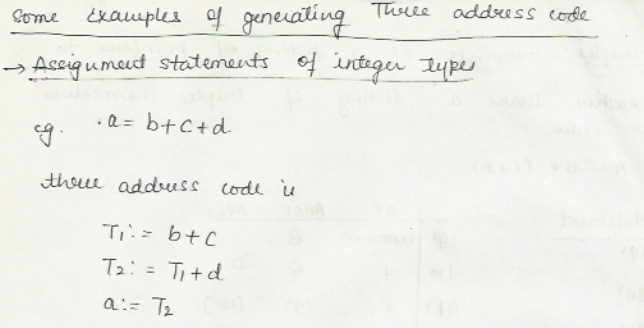 Some Examples of generating Three address code
→ Assignment statements of integer type
eg. a = b+c+d
three address code is
T1 := b+c
T2 := T1+d
a := T2